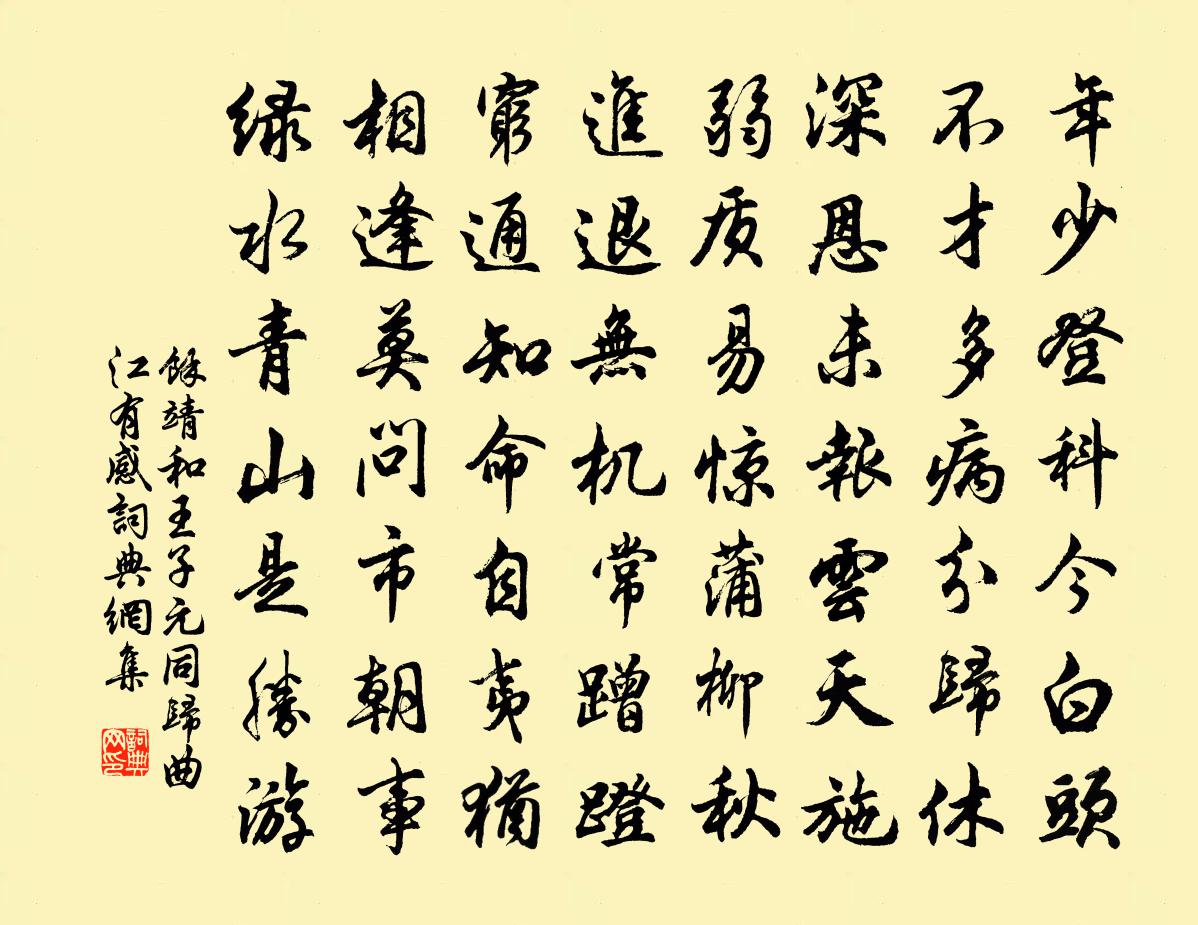 年少登科今白頭
不才多病分歸休
深恩未報雲天施
弱质易惊蒲柳秋
進退無机常蹭蹬
窮通知命自夷猶
相逢莫問市朝事
绿水青山是勝游
餘靖和王子元同歸曲
江有感詞典網集
詞典
网印